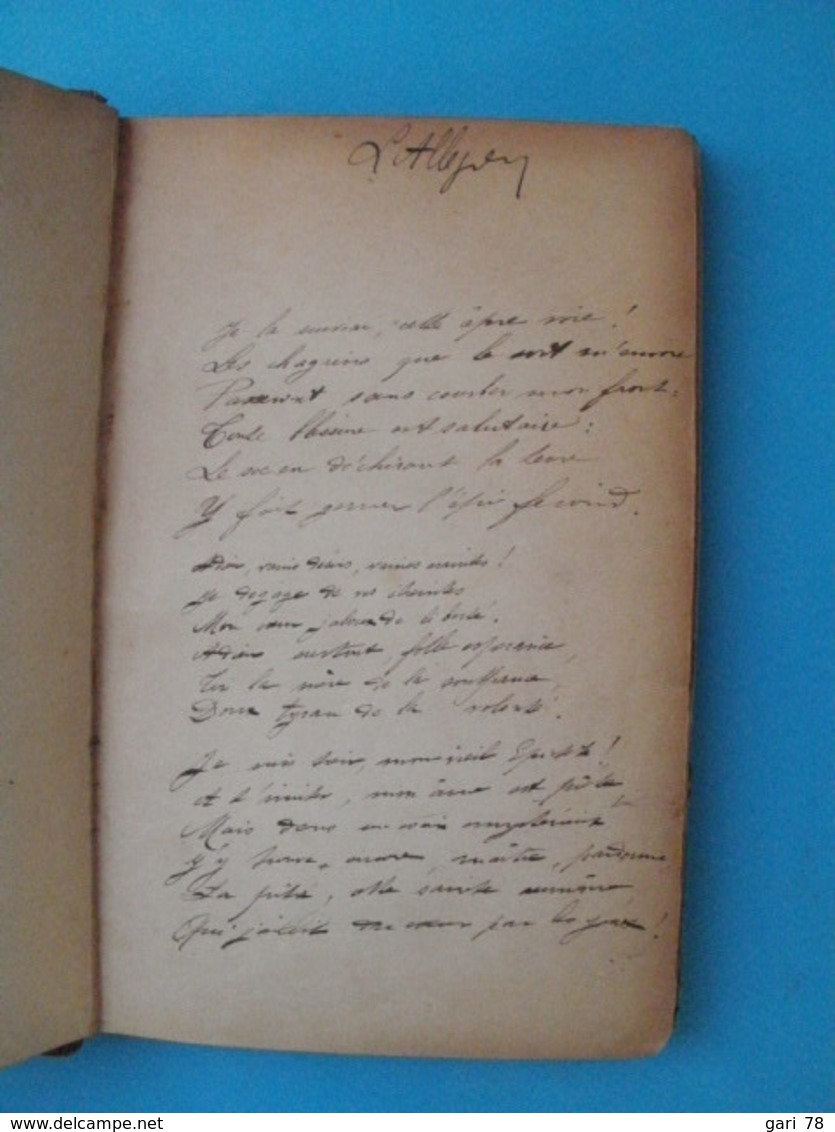 Je la suivrai, cette âpre voie !
Les chagrins que le sort m'envoie
Passeront sans courber mon front :
Toute blessure est salutaire :
Le soc en déchirant la terre
Y fait germer l'épi fécond.
Adieu, vains désirs, vaines craintes !
Je dégage de vos étreintes
Mon cœur jaloux de liberté.
Adieu surtout, folle espérance,
Toi la mère de la souffrance,
Doux tyran de la volonté.
Je suis tien, mon vieil Epictète !
A t'imiter, mon âme est prête
Mais dans ma voie mystérieux
J'y trouve encore, maître, pardonne,
La pitié, cette sainte aumône
Qui jaillit du cœur par les yeux !
gari 78